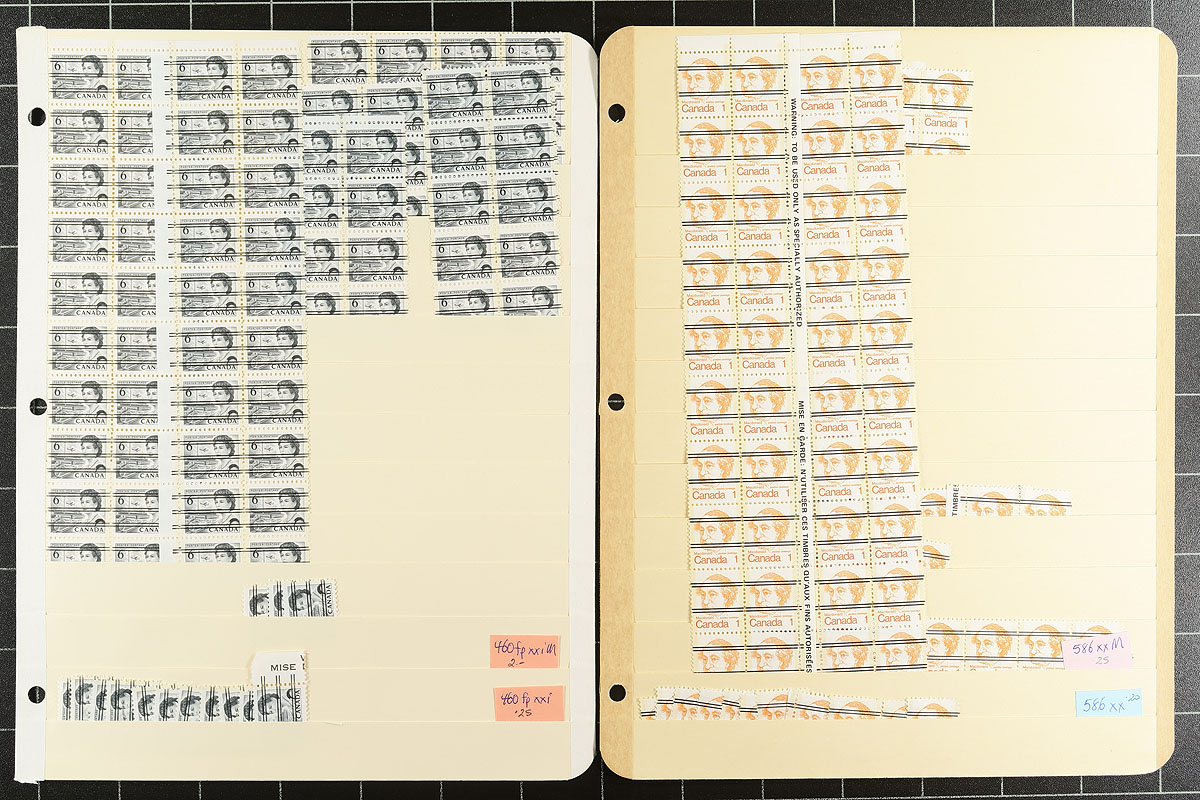 6 CANADA
POSTES-POSTAGE
MISE
460 fp xxi M
2.-
460 fp xxi
.25
Canada 1
WARNING: TO BE USED ONLY AS SPECIALLY AUTHORIZED
MISE EN GARDE: N'UTILISER CES TIMBRES QU'AUX FINS AUTORISÉES
TIMBRES
586 xx M
25
586 xx .20